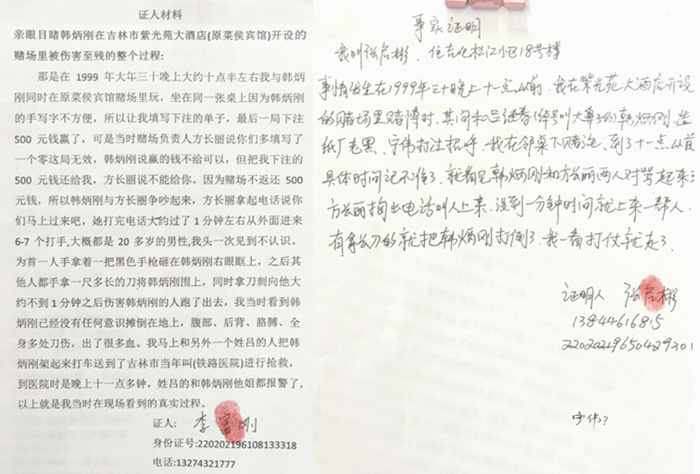 证人材料
亲眼目睹韩炳刚在吉林市紫光苑大酒店(原菜侯宾馆)开设的
赌场里被伤害至残的整个过程:
那是在 1999 年大年三十晚上大约十点半左右我与韩炳
刚同时在原菜侯宾馆赌场里玩，坐在同一张桌上因为韩炳刚
的手写字不方便，所以让我填写下注的单子，最后一局下注
500 元钱赢了，可是当时赌场负责人方长丽说你们多填写了
一个零这局无效，韩炳刚说赢的钱不给可以，但把我下注的
500 元钱还给我，方长丽说不能给你。因为赌场不返还 500
元钱，所以韩炳刚与方长丽争吵起来，方长丽拿起电话说你
们马上过来吧，她打完电话大约过了 1 分钟左右从外面进来
6-7 个打手,大概都是 20 多岁的男性,我头一次见到不认识。
为首一人手拿着一把黑色手枪砸在韩炳刚右眼眶上，之后其
他人都手拿一尺多长的刀将韩炳刚围上，同时拿刀刺向他大
约不到 1 分钟之后伤害韩炳刚的人跑了出去，我当时看到韩
炳刚已经没有任何意识摊倒在地上，腹部、后背、胳膊、全
身多处刀伤，出了很多血。我马上和另外一个姓吕的人把韩
炳刚架起来打车送到了吉林市当年叫(铁路医院)进行抢救，
到医院时是晚上十一点多钟，姓吕的和韩炳刚他姐都报警了，
以上就是我当时在现场看到的真实过程。
证人: 李富刚
身份证号:220202196108133318
电话:13274321777
事实证明
我叫张启彬，住在化松江小区18号楼
事情发生在1999年三十晚上十一点以前，我在紫光苑大酒店开设
的赌场里赌博时，其间和吕继春(绰号叫大尊子)的韩炳刚，造
纸厂老黑、宁伟打过招呼，我在邻桌下赌注，到了十一点以前
具体时间记不清了，就看见韩炳刚和方长丽两人对骂起来了
方长丽掏出电话叫人上来，没到一分钟时间就上来一帮人，
有拿长刀的就把韩炳刚打倒了，我一看打仗就走了。
证明人 张启彬
13844616815
22020219650429301
宁伟?